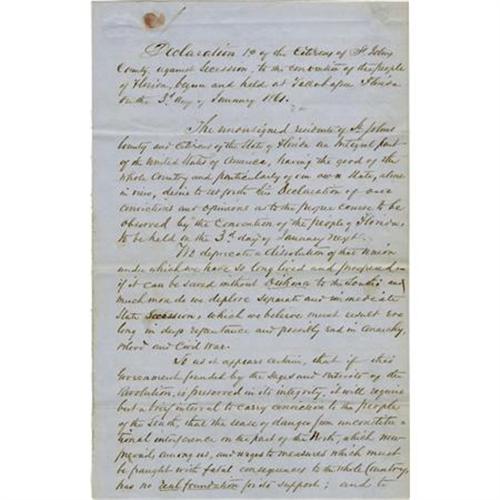 Declaration &c of the Citizens of St Johns
County, against Secession, to the convention of the people
of Florida, begun and held at Tallahassee Florida
on the 3d day of January 1861.
The undersigned residents of St. Johns
County and Citizens of the State of Florida an integral part
of the United States of America, having the good of the
whole Country and particularly of our own State, alone
in view, desire to set forth this Declaration of our
convictions and opinions as to the proper course to be
observed by the Convention of the people of Florida,
to be held on the 3d day of January next.
We deprecate a dissolution of that Union
under which we have so long lived and prospered
if it can be saved without to the South and
much more do we deplore separate and immediate
State Secession, which we believe must result ere
long in deep repentance and possibly end in Anarchy,
blood and Civil War.
To us it appears certain, that if this
Government founded by the Sages and Patriots of the
Revolution, is preserved in its integrity, it will require
but a brief interval to carry conviction to the people
of the South, that the sense of danger from unconstitu
tional interference on the part of the North, which now
prevails among us, and urges to measures which must
be fraught with fatal consequences to the whole Country,
has no real foundation for its support; and to